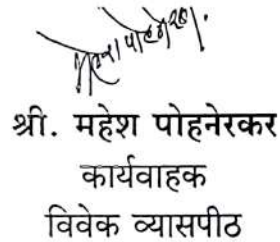 श्री. महेश पोहनेरकर
कार्यवाहक
विवेक व्यासपीठ